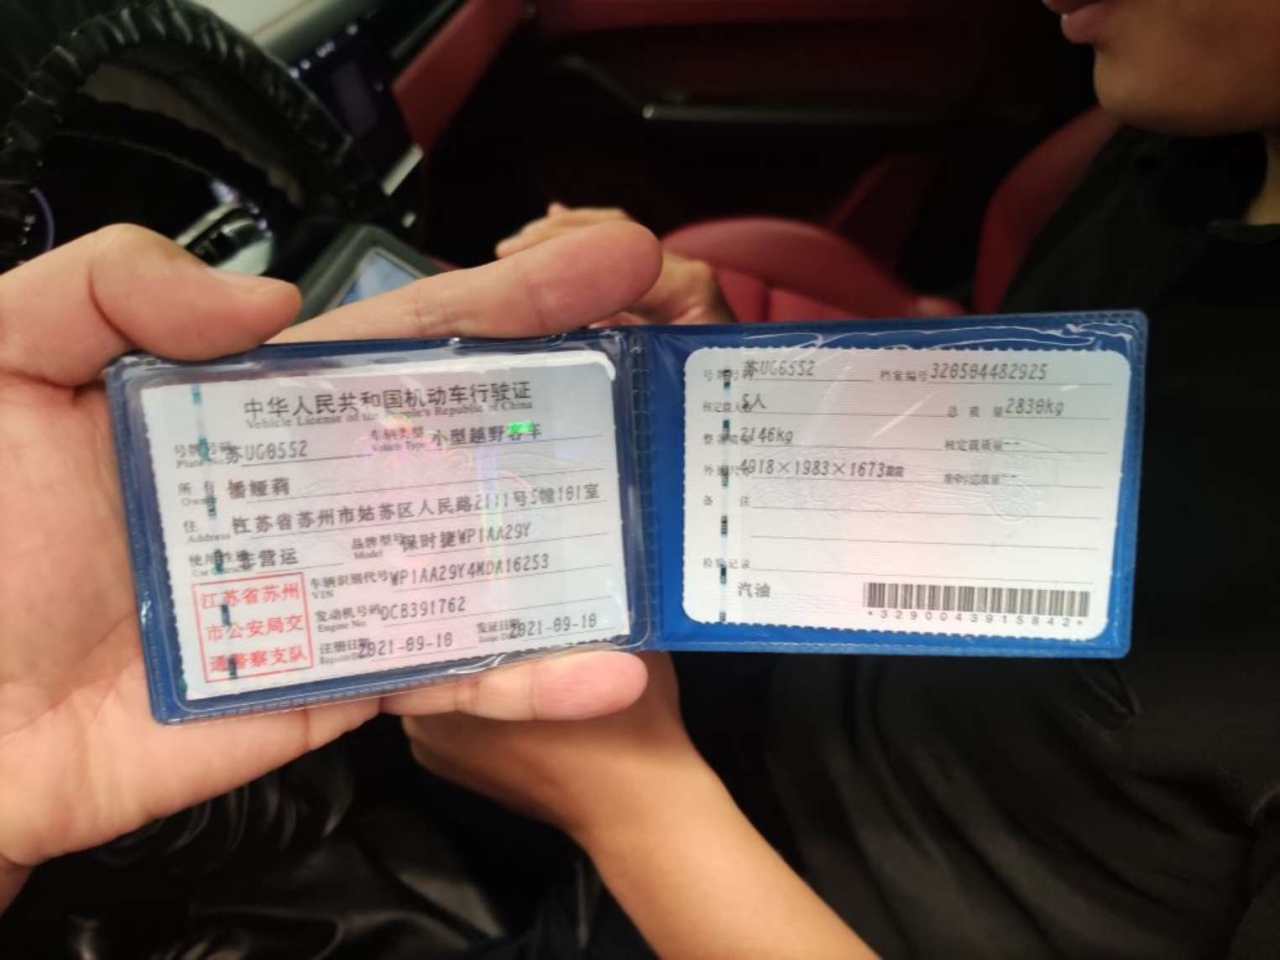 中华人民共和国机动车行驶证
Vehicle License of the People's Republic of China
号牌号码 苏UG0552 车辆类型 小型越野客车
Plate No. Vehicle Type
所有
Owner
住 江苏省苏州市姑苏区人民路2111号5幢101室
Address
使用性 非营运 品牌型号 保时捷WP1AA29Y
Use Model
江苏省苏州
市公安局交
通警察支队
车辆识别代号 WP1AA29Y4MDA16253
VIN
发动机号码 DCB391762
Engine No.
注册日期 2021-09-10 发证日期 2021-09-10
Register Issue
号牌号 档案编号 320504482925
核定载人 5人 总质量 2830kg
整备质量 2146kg 核定载质量 --
外廓尺寸 4918×1983×1673mm --
备注
检验记录
汽油
*3290043915842*